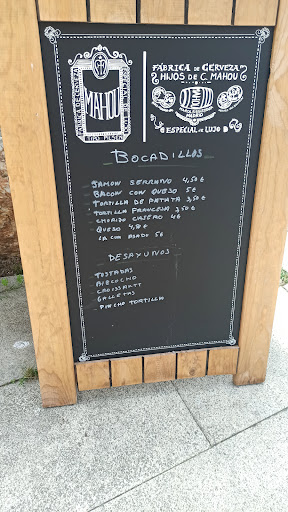 FÁBRICA DE CERVEZA
HIJOS DE C. MAHOU
MAHOU
TIPO PILSEN
MADRID
ESPECIAL DE LUJO
BOCADILLOS
JAMON SERRANO 4,50 €
BACON CON QUESO 5€
TORTILLA DE PATATA 3,50€
TORTILLA FRANCESA 3,50€
CHORIZO CASERO 4€
QUESO 4,80€
LACON ASADO 5€
DESAYUNOS
TOSTADAS
BIZCOCHO
CROISSANTT
GALLETAS
PINCHO TORTILLA